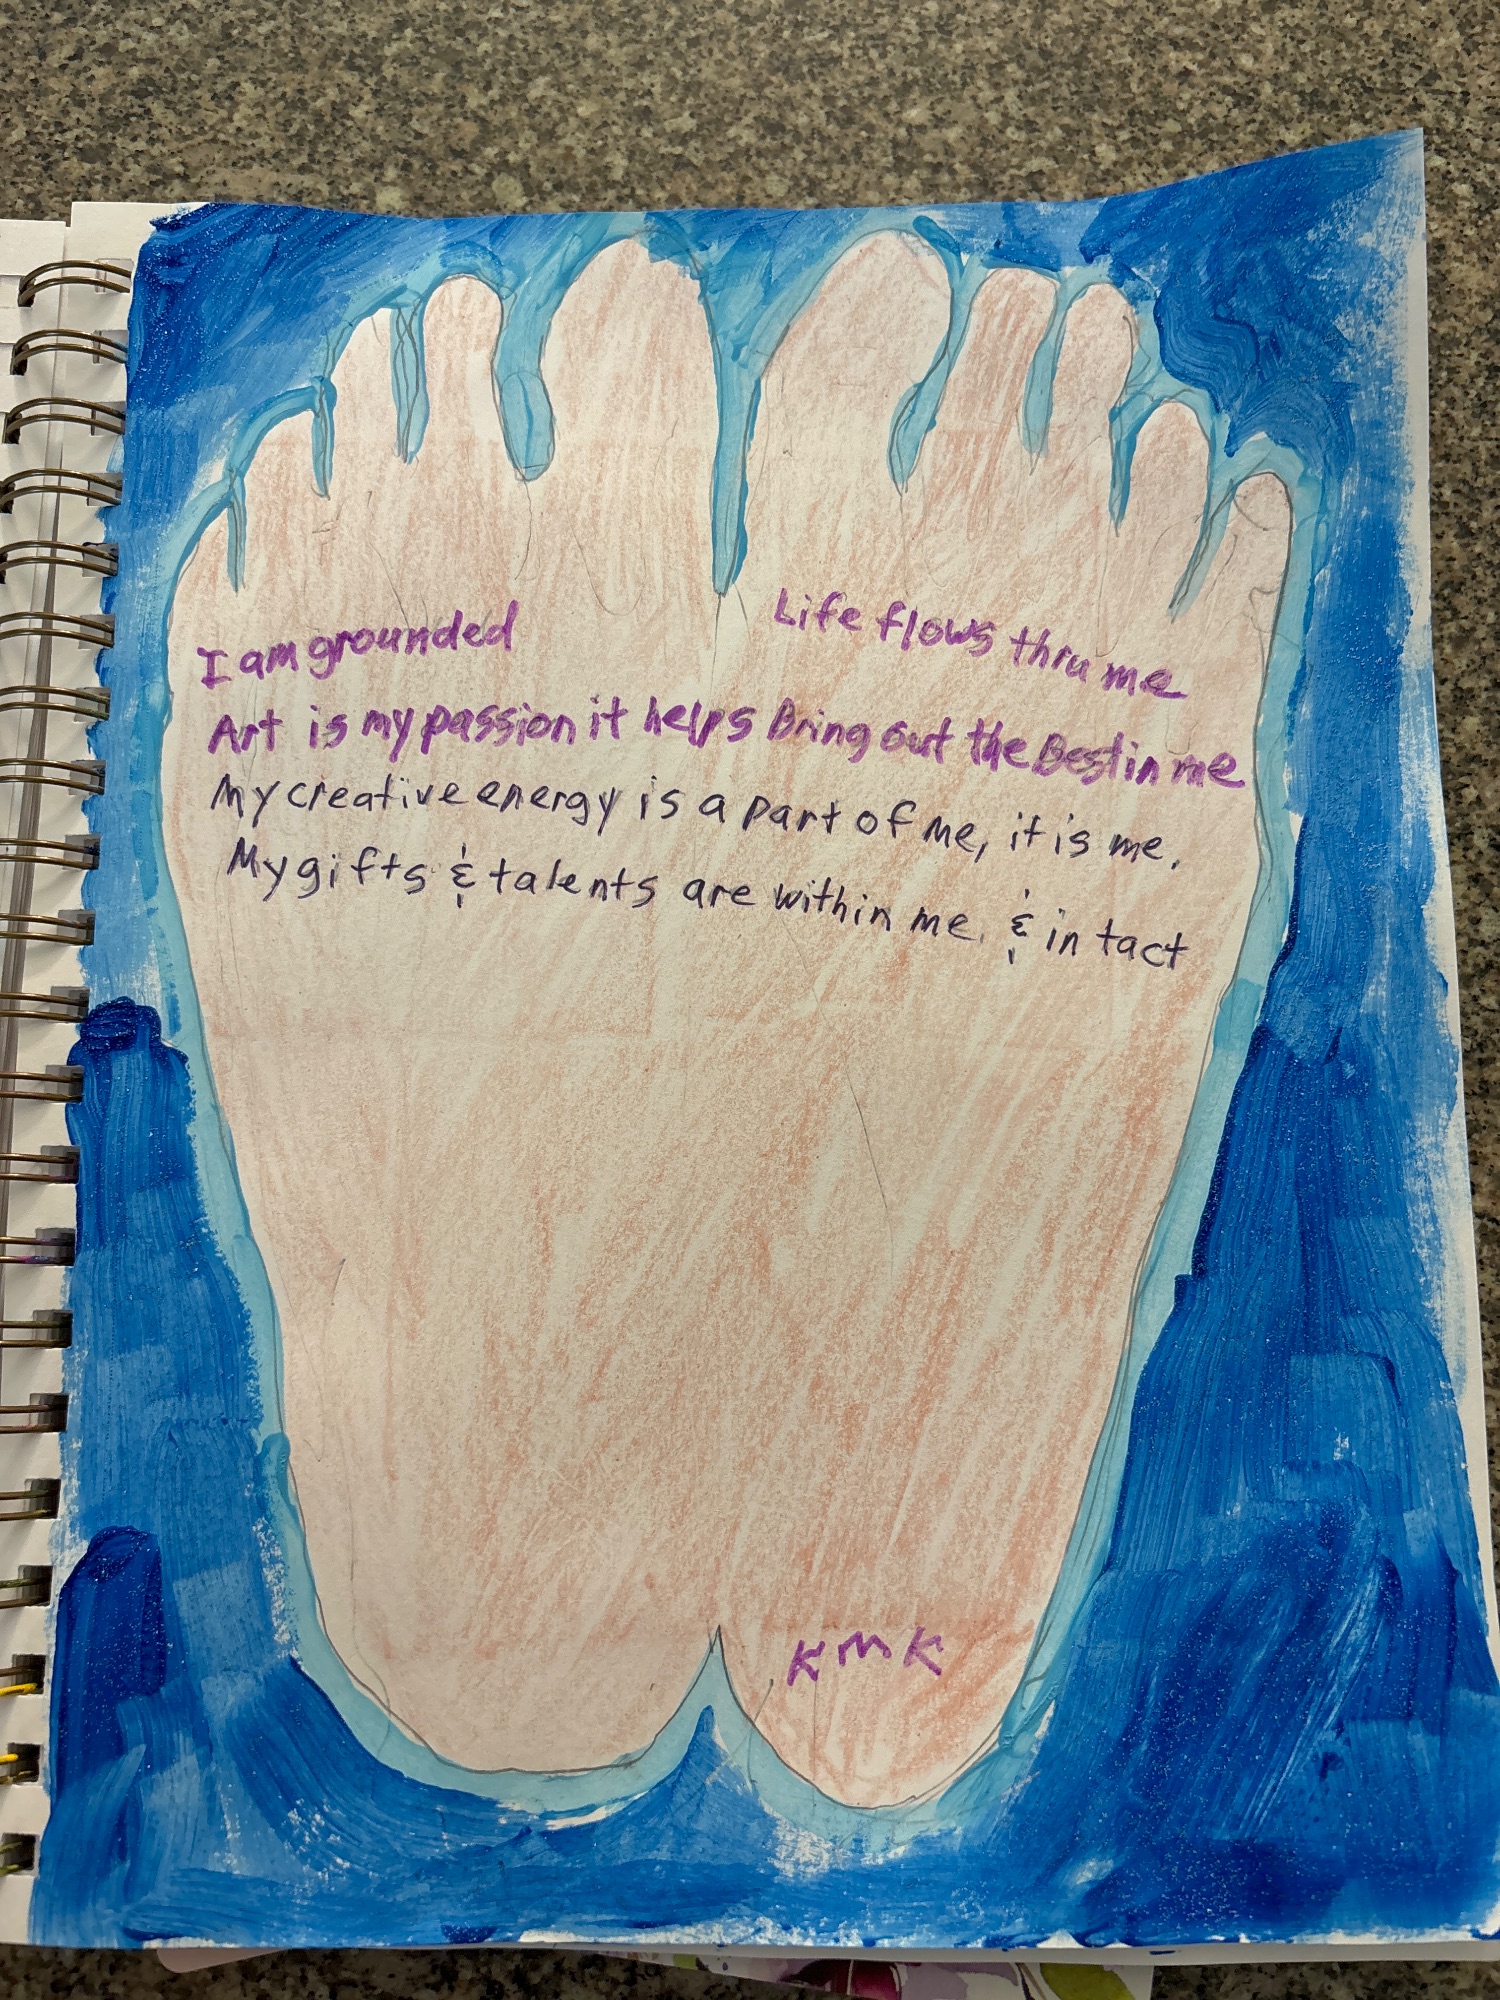 I am grounded
Life flows thru me
Art is my passion it helps Bring out the Best in me
My creative energy is a part of me, it is me.
My gifts & talents are within me. & in tact
KMK